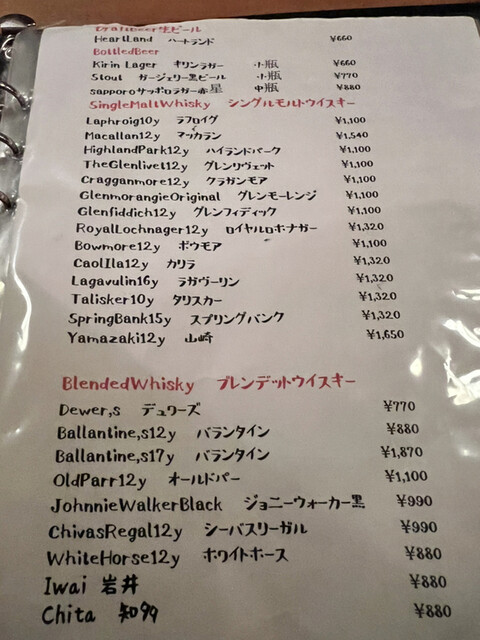 DraftBeer生ビール
HeartLand ハートランド ¥660
BottledBeer
Kirin Lager キリンラガー 小瓶 ¥660
Stout ガージェリー黒ビール 小瓶 ¥770
sapporoサッポロラガー赤星 中瓶 ¥880
SingleMaltWhisky シングルモルトウイスキー
Laphroig10y ラフロイグ ¥1,100
Macallan12y マッカラン ¥1,540
HighlandPark12y ハイランドパーク ¥1,100
TheGlenlivet12y グレンリヴェット ¥1,100
Cragganmore12y クラガンモア ¥1,100
GlenmorangieOriginal グレンモーレンジ ¥1,100
Glenfiddich12y グレンフィディック ¥1,100
RoyalLochnager12y ロイヤルロホナガー ¥1,320
Bowmore12y ボウモア ¥1,100
CaolIla12y カリラ ¥1,320
Lagavulin16y ラガヴーリン ¥1,320
Talisker10y タリスカー ¥1,320
SpringBank15y スプリングバンク ¥1,320
Yamazaki12y 山崎 ¥1,650
BlendedWhisky ブレンデットウイスキー
Dewer,s デュワーズ ¥770
Ballantine,s12y バランタイン ¥880
Ballantine,s17y バランタイン ¥1,870
OldParr12y オールドパー ¥1,100
JohnnieWalkerBlack ジョニーウォーカー黒 ¥990
ChivasRegal12y シーバスリーガル ¥990
WhiteHorse12y ホワイトホース ¥880
Iwai 岩井 ¥880
Chita 知多 ¥880